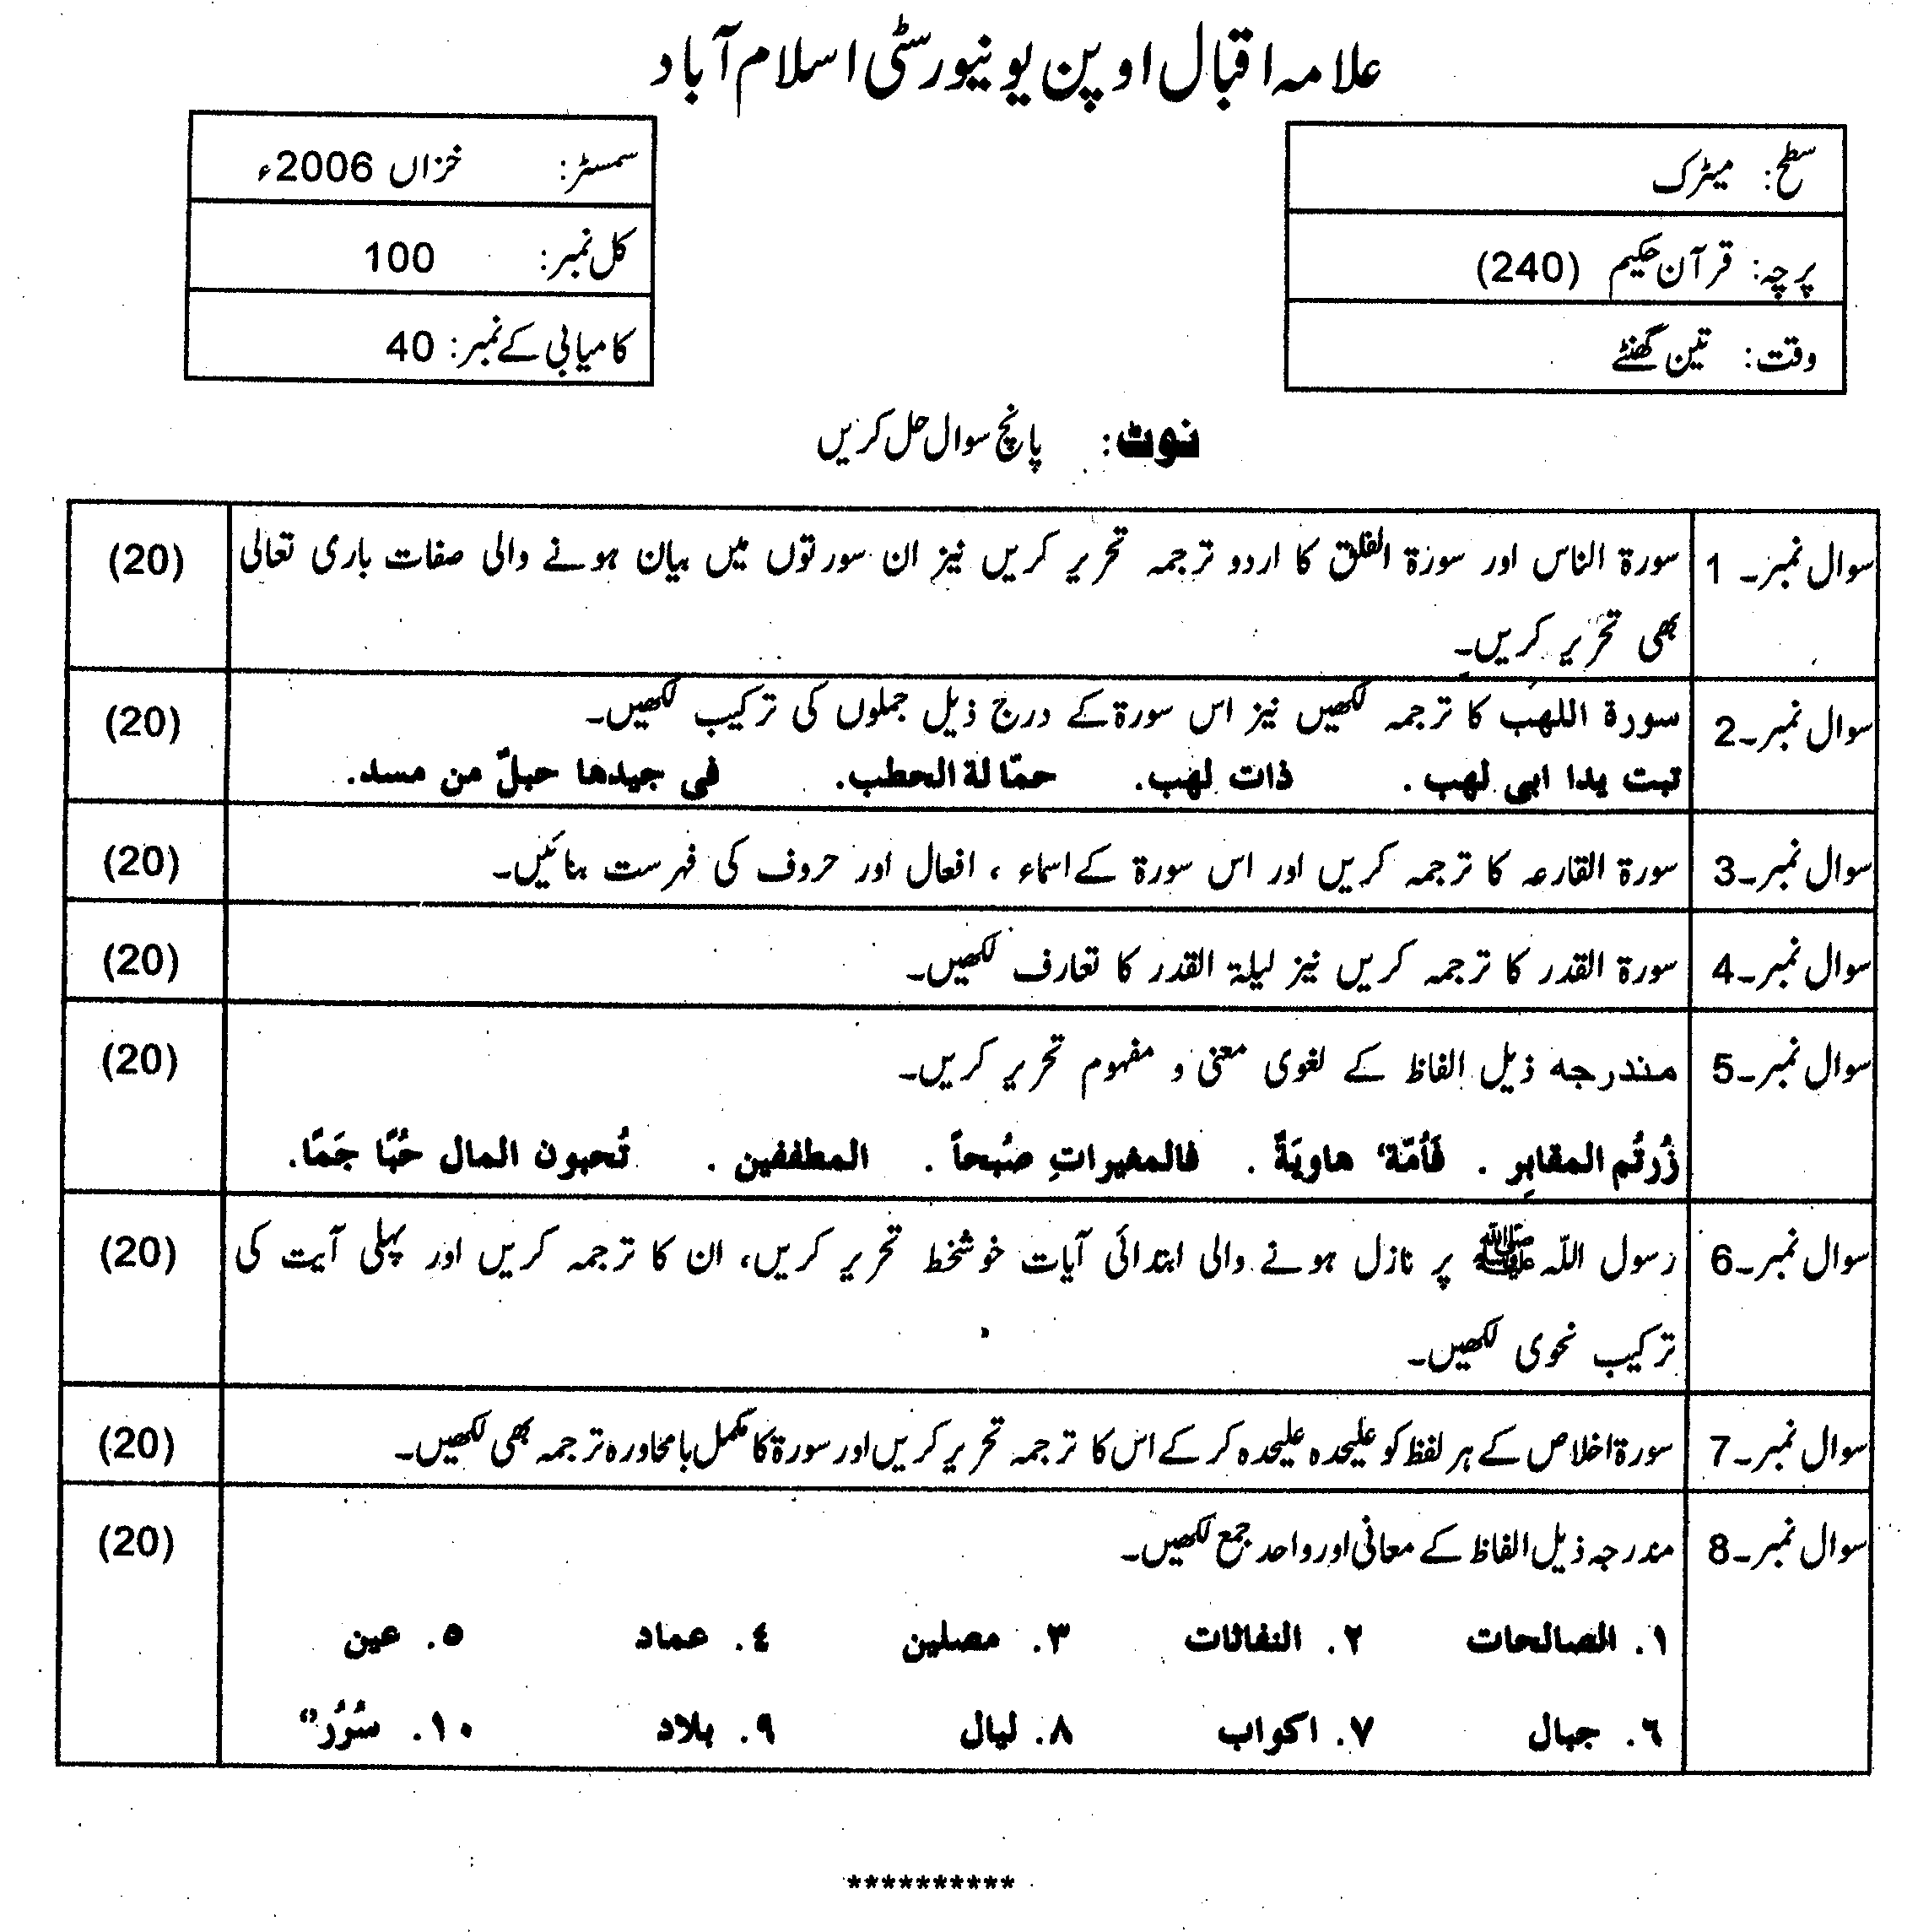 علامہ اقبال اوپن یونیورسٹی اسلام آباد
سطح: میٹرک
سمسٹر: خزاں 2006ء
پرچہ: قرآن حکیم (240)
کل نمبر: 100
وقت: تین گھنٹے
کامیابی کے نمبر: 40
نوٹ: پانچ سوال حل کریں
سوال نمبر۔ 1 سورۃ الناس اور سورۃ الفلق کا اردو ترجمہ تحریر کریں نیز ان سورتوں میں بیان ہونے والی صفات باری تعالی (20)
بھی تحریر کریں۔
سوال نمبر۔2 سورۃ اللھب کا ترجمہ لکھیں نیز اس سورۃ کے درج ذیل جملوں کی ترکیب لکھیں۔ (20)
تبت یدا ابی لھب . ذات لھب. حمّالۃ الحطب. فی جیدھا حبلٌ من مسد.
سوال نمبر۔3 سورۃ القارعہ کا ترجمہ کریں اور اس سورۃ کے اسماء ، افعال اور حروف کی فہرست بنائیں۔ (20)
سوال نمبر۔4 سورۃ القدر کا ترجمہ کریں نیز لیلۃ القدر کا تعارف لکھیں۔ (20)
سوال نمبر۔5 مندرجہ ذیل الفاظ کے لغوی معنی و مفہوم تحریر کریں۔ (20)
زُرتُم المقابِر . فَاُمّہ‘ ھاویَۃٌ . فالمغیراتِ صُبحاً . المطففین . تُحبون المال حُبًّا جَمًّا.
سوال نمبر۔6 رسول اللّہ ﷺ پر نازل ہونے والی ابتدائی آیات خوشخط تحریر کریں، ان کا ترجمہ کریں اور پہلی آیت کی (20)
ترکیب نحوی لکھیں۔
سوال نمبر۔7 سورۃ اخلاص کے ہر لفظ کو علیحدہ علیحدہ کر کے اس کا ترجمہ تحریر کریں اور سورۃ کا مکمل بامحاورہ ترجمہ بھی لکھیں۔ (20)
سوال نمبر۔8 مندرجہ ذیل الفاظ کے معانی اور واحد جمع لکھیں۔ (20)
١. الصالحات ٢. النفاثات ٣. مصلین ٤. عماد ٥. عین
٦. جبال ٧. اکواب ٨. لیال ٩. بلاد ١٠. سُرُر"
**********